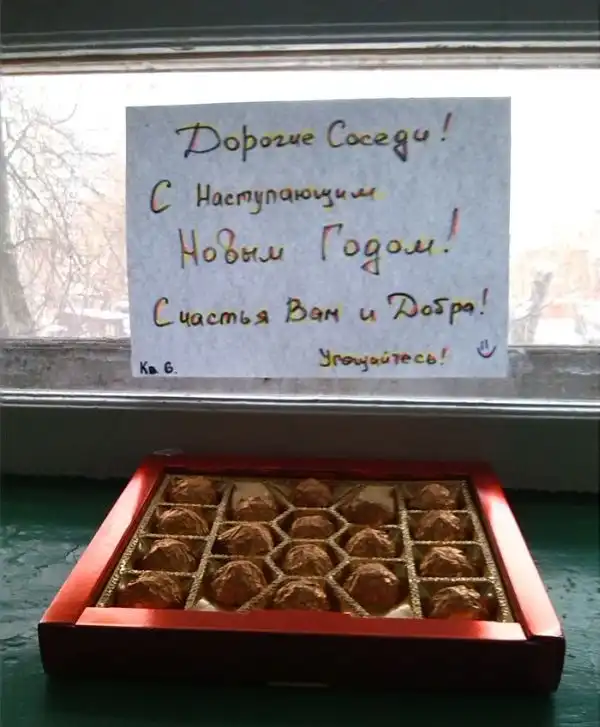 Дорогие Соседи!
С Наступающим
Новым Годом!
Счастья Вам и Добра!
Угощайтесь!
Кв. 6.